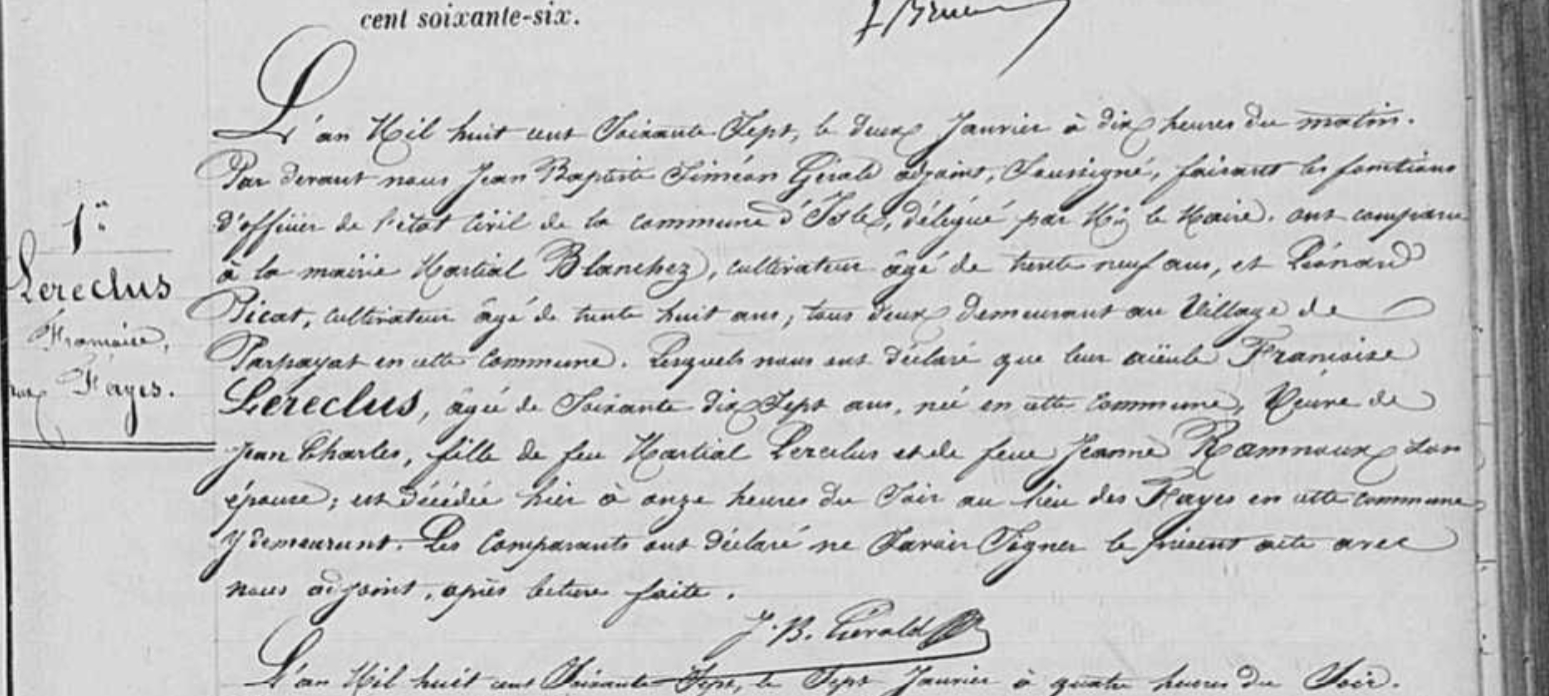 cent soixante-six.
L'an Mil huit cent Soixante Sept, le deux Janvier à dix heures du matin.
Par devant nous Jean Baptiste Siméon Gérald adjoint, Soussigné, faisant les fonctions
d'officier de l'état Civil de la commune d'Isle, délégué par Mr le Maire. ont comparu
à la mairie Martial Blanchez, cultivateur âgé de trente neuf ans, et Léonard
Picat, cultivateur âgé de trente huit ans, tous deux demeurant au Village de
Parpayat en cette Commune. Lesquels nous ont déclaré que leur aïeule Francoise
Lereclus, âgée de Soixante dix Sept ans, née en cette Commune, Veuve de
Jean Charles, fille de feu Martial Lereclus et de feue Jeanne Ramnoux son
épouse; est décédée hier à onze heures du Soir au lieu des Fayes en cette commune
y demeurant. Les Comparants ont déclaré ne Savoir Signer le présent acte avec
nous adjoint, après lecture faite.
J. B. Gérald
1er
Lereclus
Francoise,
aux Fayes.
L'an Mil huit cent Soixante Sept, le Sept Janvier à quatre heures du Soir.